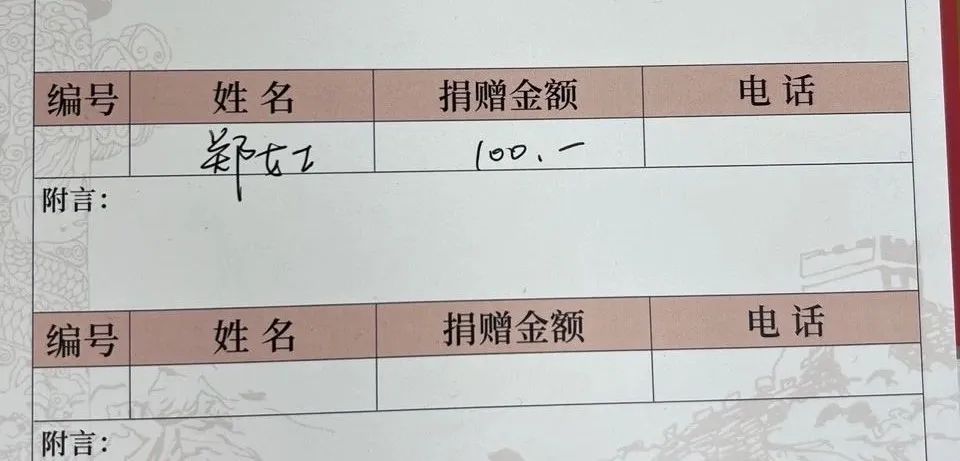 编号 姓名 捐赠金额 电话
郑女士 100.-
附言：
编号 姓名 捐赠金额 电话
附言：